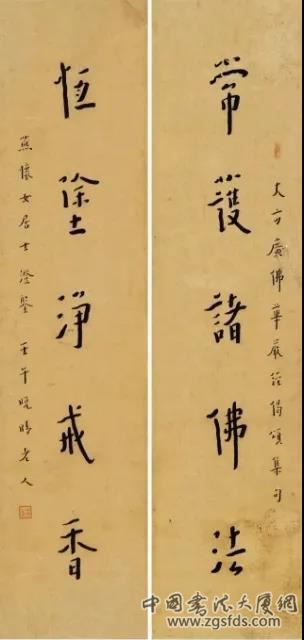 大方廣佛華嚴經偈頌集句
常護諸佛法
恆塗淨戒香
懷女居士澄鑒 壬午晚晴老人
中國書法大厦網
www.zgsfds.com